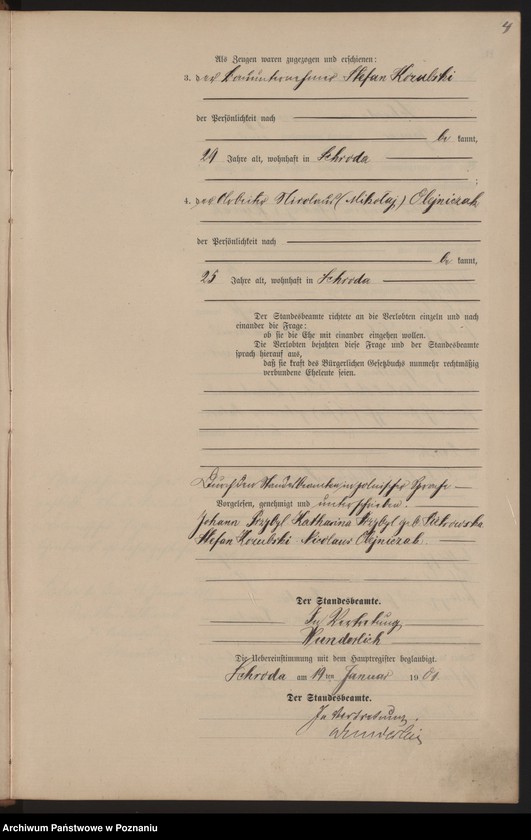 4
Als Zeugen waren zugezogen und erschienen:
3. der Bauunternehmer Stefan Kozubski
der Persönlichkeit nach
be kannt,
29 Jahre alt, wohnhaft in Schroda
;
4. der Arbeiter Nicolaus (Mikołaj) Olejniczak
der Persönlichkeit nach
be kannt,
25 Jahre alt, wohnhaft in Schroda
Der Standesbeamte richtete an die Verlobten einzeln und nach
einander die Frage:
ob sie die Ehe mit einander eingehen wollen.
Die Verlobten bejahten diese Frage und der Standesbeamte
sprach hierauf aus,
daß sie kraft des Bürgerlichen Gesetzbuchs nunmehr rechtmäßig
verbundene Eheleute seien.
Durch den Standesbeamten in polnischer Sprache
Vorgelesen, genehmigt und unterschrieben.
Johann Przybyl Katharina Przybyl geb.
Stefan Kozubski Nicolaus Olejniczak
Der Standesbeamte.
In Vertretung
Wunderlich
Die Uebereinstimmung mit dem Hauptregister beglaubigt.
Schroda am 19ten Januar 1901
Der Standesbeamte.
In Vertretung.
Wunderlich
Archiwum Państwowe w Poznaniu